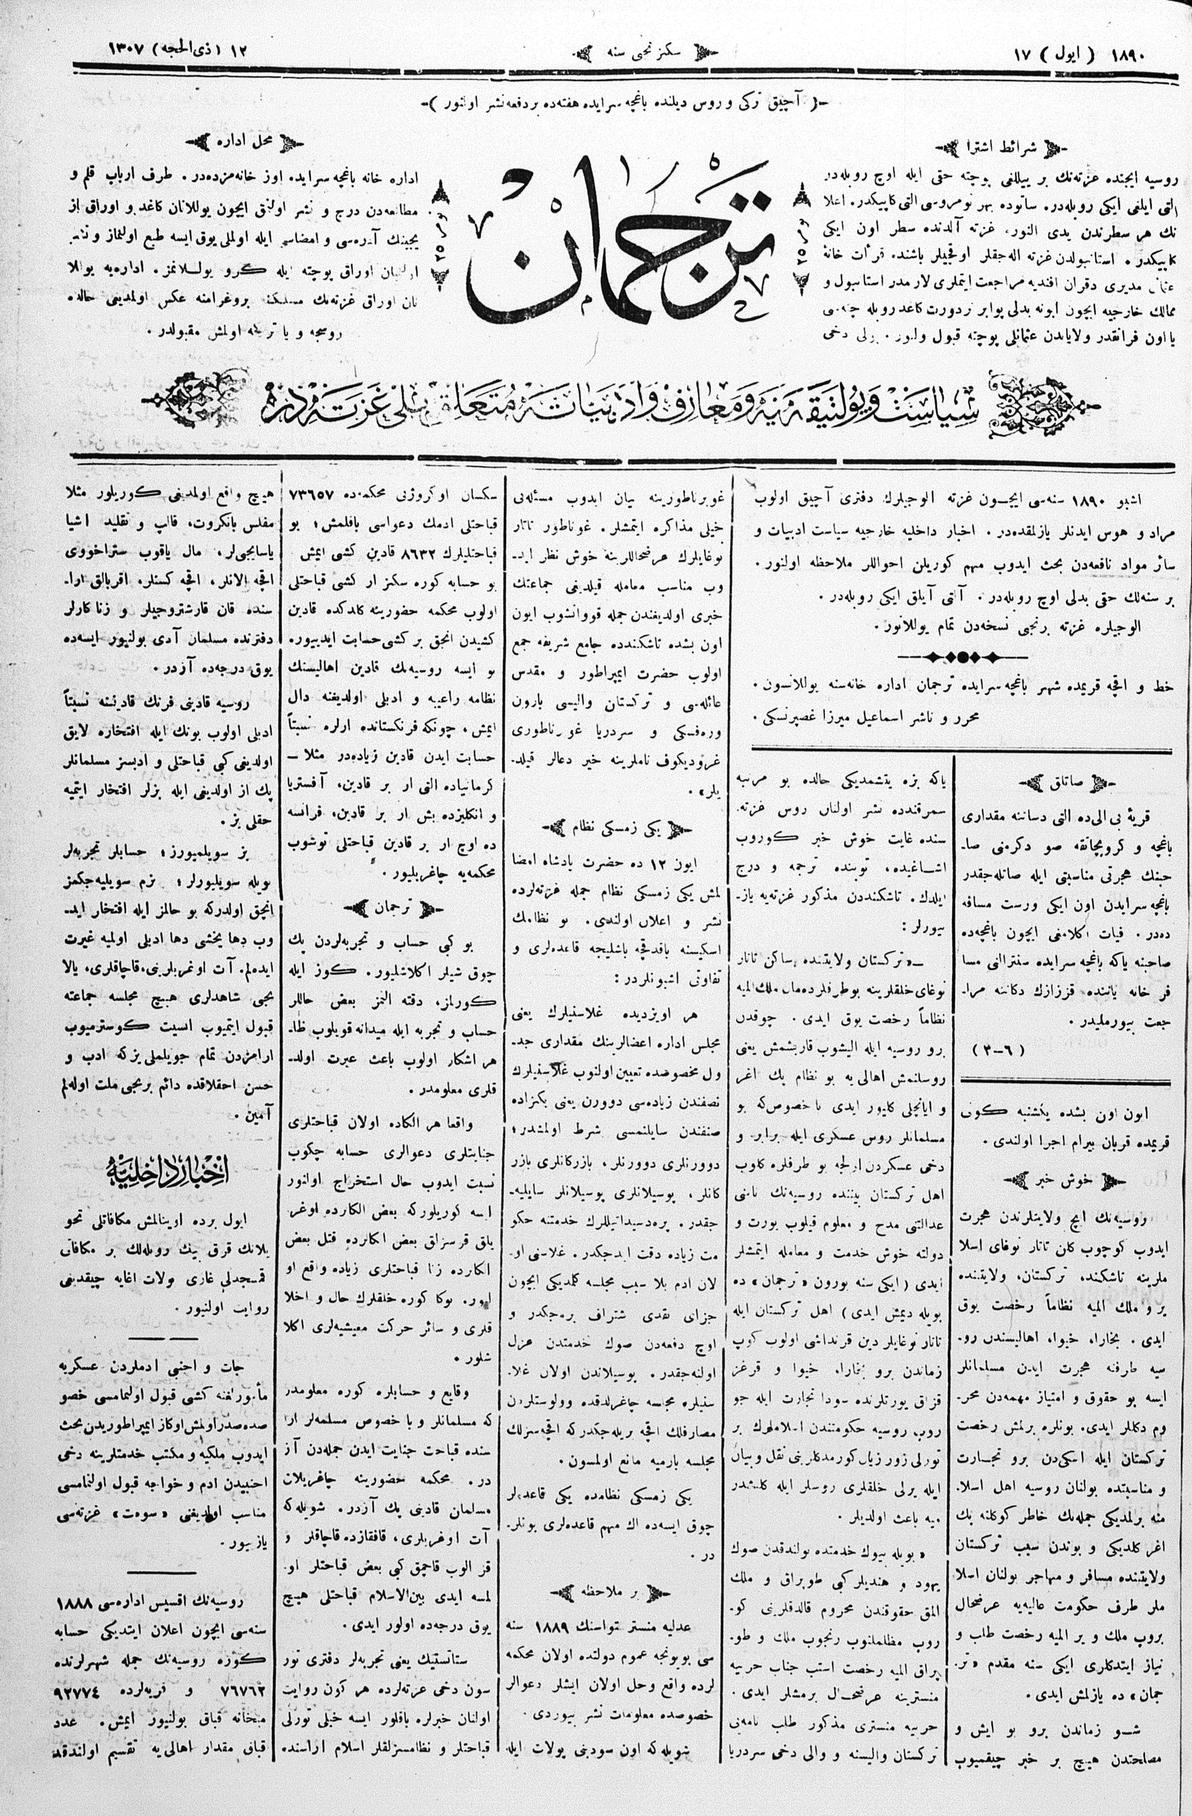 ١٨٩٠ ( ايول ) ١٧
سكز نجى سنه
١٢ (ذى الحجه) ١٣٠٧
-( آچيق تركى و روس ديلنده باغچه سرايده هفته ده بر دفعه نشر اولنور )-
شرائط اشترا
روسيه ايچنده غزته نك بر ييللغى پوچته حقى ايله اوچ روبله در
التى ايلغى ايكى روبله در. ساتوده بهر نومروسى التى كاپيكدر. اعلا
نك هر سطرندن يدى النور، غزته آلدنده سطر اون ايكى
كاپيكدر. استانبولدن غزته اله جقلر اوقجيلر باشنده قرائت خانهٔ
مديرى دقران افنديه مراجعت ايتملرى لازمدر استانبول و
ممالك خارجيه ايچون ابونه بدلى
يا اون فرانقدر ولاياتدن عثمانلى پوچته قبول
محل اداره
اداره خانه باغچه سرايده اوز خانه مزده در. طرف ارباب قلم و
مطالعه دن درج و نشر اولنق ايچون يوللانان كاغد و اوراق از
يجينك آدره سى و امضاسى ايله اولملى يوق ايسه طبع اولنماز و ناشر
اولنميان اوراق پوچته ايله كرو يوللانمز. اداره يه يوللا
نان اوراق غزته نك مسلكنه پروغرامنه عكس اولمديغى حالده
روسجه و يا تركجه اولمش مقبولدر.
ترجمان
سياست و پولتيقه يه و معارف و ادبياته متعلق ملى غزته در
اشبو ١٨٩٠ سنه سى ايچون غزته الوجيلرك دفترى آچيق اولوب
مراد و هوس ايدنلر يازلمقده در. اخبار داخليه خارجيه سياست ادبيات و
سائر مواد نافعه دن بحث ايدوب مهم كوريلن احواللر ملاحظه اولنور.
بر سنه لك حقى بدلى اوچ روبله در. آلتى آيلق ايكى روبله در.
الوجيلره غزته برنجى نسخه دن تمام يوللانور.
خط و اقچه قريمده شهر باغچه سرايده ترجمان اداره خانه سنه يوللانسون.
محرر و ناشر اسماعيل ميرزا غصپرنسكى.
صاتاق
قريهٔ بى الى ده التى دساتنه مقدارى
باغچه و كروپچاتقه صو دكرمنى صا-
حبنك هجرتى مناسبتى ايله صاتله جقدر
باغچه سرايدن اون ايكى ورست مسافه
ده در. فيات اكلامغى ايچون باغچه ده
صاحبنه ياكه باغچه سرايده سنترالنى مسا
فر خانه ياننده قززازك دكاننه مرا-
جعت بيورمليدر.
(٣-٦)
ايون اون بشده يكشنبه كون
قريمده قربان بيرام اجرا اولندى.
خوش خبر
روسيه نك ايچ ولايتلرندن هجرت
ايدوب كوچوب كان تاتار نوغاى اسلا
ملرينه تاشكند، تركستان، ولايتنده
ير و ملك الميه نظاماً رخصت يوق
ايدى. بخارا، خيوا، اهاليسندن رو-
سيه طرفنه هجرت ايدن مسلمانلر
ايسه بو حقوق و امتياز مهمه دن محر-
وم دكللر ايدى. بونلره برلمش رخصت
تركستان ايله اسكى دن برو تجارت
و مناسبتده بولنان روسيه اهل اسلا.
منه برلمديكى جمله نك خاطر كوكلنه پك
اغر كلديكى و بوندن سبب تركستان
ولايتنده مسافر و مهاجر بولنان اسلا
ملر طرف حكومت عاليه يه عرضحال
بروپ ملك و ير الميه رخصت طلب و
نياز ايتدكلرى ايكى سنه مقدم «تر.
جمان» ده يازلمش ايدى.
شو زماندن برو بو ايش و
مصلحتدن هيچ بر خبر چيقميوب
ياكه بزه يتشمديكى حالده بو مرتبه
سمرقندده نشر اولنان روس غزته
سنده غايت خوش خبر كوروب
اشاغيده، توبنده ترجمه و درج
ايلدك. تاشكنددن مذكور غزته يه ياز-
ييورلر:
— «تركستان ولايتنده ساكن تاتار
نوغاى خلقلرينه بو طرفلرده مال ملك الميه
نظاماً رخصت يوق ايدى. چوقدن
برو روسيه ايله اليشوب قاريشمش يعنى
روسلنمش اهالى يه بو نظام پك اغر
و ايانجلى كليور ايدى با خصوص كه بو
مسلمانلر روس عسكرى ايله برابر و
دخى عسكردن اولجه بو طرفلره كلوب
اهل تركستان بيننده روسيه نك نامنى
عدالتنى مدح و معلوم قيلوب يورت و
دولته خوش خدمت و معامله ايتمشلر
ايدى (ايكى سنه بورون «ترجمان» ده
بويله ديمش ايدى) اهل تركستان ايله
تاتار نوغايلر دين قرنداشى اولوب كوپ
زماندن برو بخارا، خيوا و قرغز
قزاق يورتلرنده سودا تجارت ايله جو
روب روسيه حكومتندن اسلاملرك بر
تورلى زور زيان كورمدكلرينى نقل و بيان
ايله يرلى خلقلرى روسلر ايله كلشد
ميه باعث اولديلر.
«بويله بيوك خدمتده بولندقدن صوك
يهود و هنديلر كبى طوپراق و ملك
المق حقوقندن محروم قالدقلرينى كو-
روب مظلملنوب رنجوب ملك و طو-
پراق الميه رخصت استب جناب حربيه
منسترينه عرضحال برمشلر ايدى.
حربيه منسترى مذكور طلب نامه يى
تركستان واليسنه و والى دخى سردريا
غوبرناطورينه بيان ايدوب مسئله يى
خيلى مذاكره ايتمشلر. غوناطور تاتار
نوغايلرك عرضحاللرينه خوش نظر ايد-
وب مناسب معامله قيلديغى جماعتك
خبرى اولديغندن جمله قووانشوب ايون
اون بشده تاشكندده جامع شريفه جمع
اولوب حضرت ايمپراطور و مقدس
عائله سى و تركستان واليسى بارون
وره فسكى و سردريا غوبرناطورى
غروديكوف ناملرينه خير دعالر قيلد-
يلر».
يكى زمسكى نظام
ايون ١٢ ده حضرت پادشاه امضا
لمش يكى زمسكى نظام جمله غزته لرده
نشر و اعلان اولندى. بو نظامك
اسكيسنه باقدقچه باشليجه قاعده لرى و
تفاوتى اشبونلردر:
هر اويزديده غلاسنيلرك يعنى
مجلس اداره اعضالرينك مقدارى جد-
ول مخصوصده تعيين اولنوب غلاسنيلرك
نصفندن زياده سى دوورن يعنى بكزاده
صنفندن سايلنمسى شرط اولمشدر؛
دوورنلرى دوورنلر، بازركانلرى بازر
كانلر، پوسيلانلرى پوسيلانلر سايليه-
جقدر. پره دسيداتيللرك خدمتنه حكو
مت زياده دقت ايده جكدر. غلاسنى او-
لان ادم بلا سبب مجلسه كلمديكى ايچون
جزاى نقدى شتراف بره جكدر و
اوچ دفعه دن صوك خدمتندن عزل
اولنه جقدر. پوسيلاندن اولان غلا-
سنيلره مجلسه چاغرلدقده وولوستلردن
مصارفلك اقچه بريله جكدر كه اقچه سزلك
مجلسه بارميه مانع اولمسون.
يكى زمسكى نظامده يكى قاعده لر
چوق ايسه ده اك مهم قاعده لرى بونلر-
در.
بر ملاحظه
عدليه منسترستواسنك ١٨٨٩ سنه
سى بويونجه عموم دولتده اولان محكمه
لرده واقع و حل اولان ايشلر دعوالر
خصوصده معلومات نشر بيوردى.
شويله كه اون سودبنى پولات ايله
سكسان اوكروژنى محكمه ده ٧٣٦٥٧
قباحتلى ادمك دعواسى باقلمش؛ بو
قباحتليلرك ٨٦٣٢ قادين كشى ايمش
بو حسابه كوره سكز ار كشى قباحتلى
اولوب محكمه حضورينه كلدكده قادين
كشيدن انجق بر كشى حسابت ايدييور.
بو ايسه روسيه نك قادين اهاليسنك
نظامه راعيه و ادبلى اولديغنه دال
ايمش، چونكه فرنكستانده ارلره نسبتاً
حسابت ايدن قادين زياده در مثلا —
كرمانياده التى ار بر قادين، آفستريا
و انكليزده بش ار بر قادين، فرانسه
ده اوچ ار بر قادين قباحتلى توشوب
محكمه يه چاغريليور.
ترجمان
بو كبى حساب و تجربه لردن پك
چوق شيلر اكلاشليور. كوز ايله
كورلمز، دقته النمز بعض حاللر
حساب و تجربه ايله ميدانه قويلوب ظا-
هر اشكار اولوب باعث عبرت اولد-
قلرى معلومدر.
واقعا هر الكاده اولان قباحتلرى
جنايتلرى دعوالرى حسابه چكوب
نسبت ايدوب حال استخراج اولنور
ايسه كوريلوركه بعض الكارده اوغر
يلق قرسزلق بعض الكارده قتل بعض
الكارده زنا قباحتلرى زياده واقع او
ليور. بوكا كوره خلقلرك حال و اخلا
قلرى و سائر حركت معيشيه لرى اكلا
شلور.
وقايع و حسابلره كوره معلومدر
كه مسلمانلر و با خصوص مسلمه لر ارا
سنده قباحت جنايت ايدن جمله دن آز
در. محكمه حضورينه چاغريلان
مسلمان قادينى پك آزدر. شويله كه
آت اوغريلرى، قافقازده قاچاقلر و
قز الوب قاچمق كبى بعض قباحتلر او-
لمسه ايدى بين الاسلام قباحتلى هيچ
يوق درجه ده اولور ايدى.
ستاتستيك يعنى تجربه لر دفترى نور
سون دخى غزته لرده هر كون روايت
اولنان خبرلره باقلور ايسه خيلى تورلى
قباحتلر و نظامسزلقلر اسلام اراسنده
هيچ واقع اولمديغى كوريلور مثلا
مفلس بانكروت، قالپ و تقليد اشيا
ياسايجى لر، مال ياقوب ستراخووى
اقچه الانلر، اقچه كسنلر، اقربالق ارا-
سنده قان قارشتروجيلر و زناكارلر
دفترنده مسلمان آدى بولنيور ايسه ده
يوق درجه ده آزدر.
روسيه قادينى فرنك قادينه نسبتاً
ادبلى اولوب بونك ايله افتخاره لايق
اولديغى كبى قباحتلى و ادبسز مسلمانلر
پك از اولديغى ايله بزلر افتخار ايتميه
حقلى بز.
بز سويلميورز؛ حسابلر تجربه لر
بويله سويليورلر؛ بزم سويليه جكمز
انجق اولدركه بو حالمز ايله افتخار ايد-
وب دها يخشى دها ادبلى اولميه غيرت
ايده لم. آت اوغريلرينى، قاچاقلرى، يالا
نجى شاهدلرى هيچ مجلسه جماعته
قبول ايتميوب اسيت كوسترميوب
ارامزدن تمام جويلملى بز كه ادب و
حسن اخلاقده دائم برنجى ملت اوله لم
آمين.
اخبار داخليه
ايول برده اوينالمش مكافاتلى نحو
يلانك قرق بيك روبله لك بر مكافاتى
قمجدلى غازى ولات اغايه چيقديغى
روايت اولنيور.
جات و اجنبى ادملردن عسكريه
مأمورلغنه كشى قبول اولنمامسى خصو
صده صدر اولمش اوكاز ايمپراطوريدن بحث
ايدوب ملكيه و مكتب خدمتلرينه دخى
اجنبيدن ادم و خواجه قبول اولنمامسى
مناسب اولديغى «سوه ت» غزته سى
يازييور.
روسيه نك اقسيس اداره سى ١٨٨٨
سنه سى ايچون اعلان ايتديكى حسابه
كوره روسيه نك جمله شهرلرنده
٧٦٧٦٢ و قريه لرده ٩٢٧٧٤
ميخانه قباق بولنيور ايمش. عدد
قباق مقدار اهالى يه تقسيم اولندقده